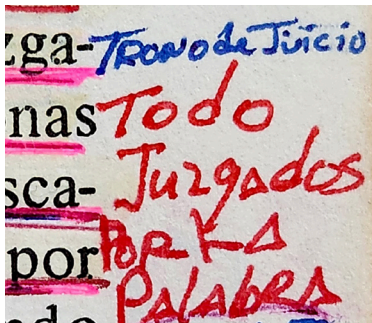 zga- TRONO de Juicio
onas Todo
sca- Juzgados
por PoR LA
PAlAbRA